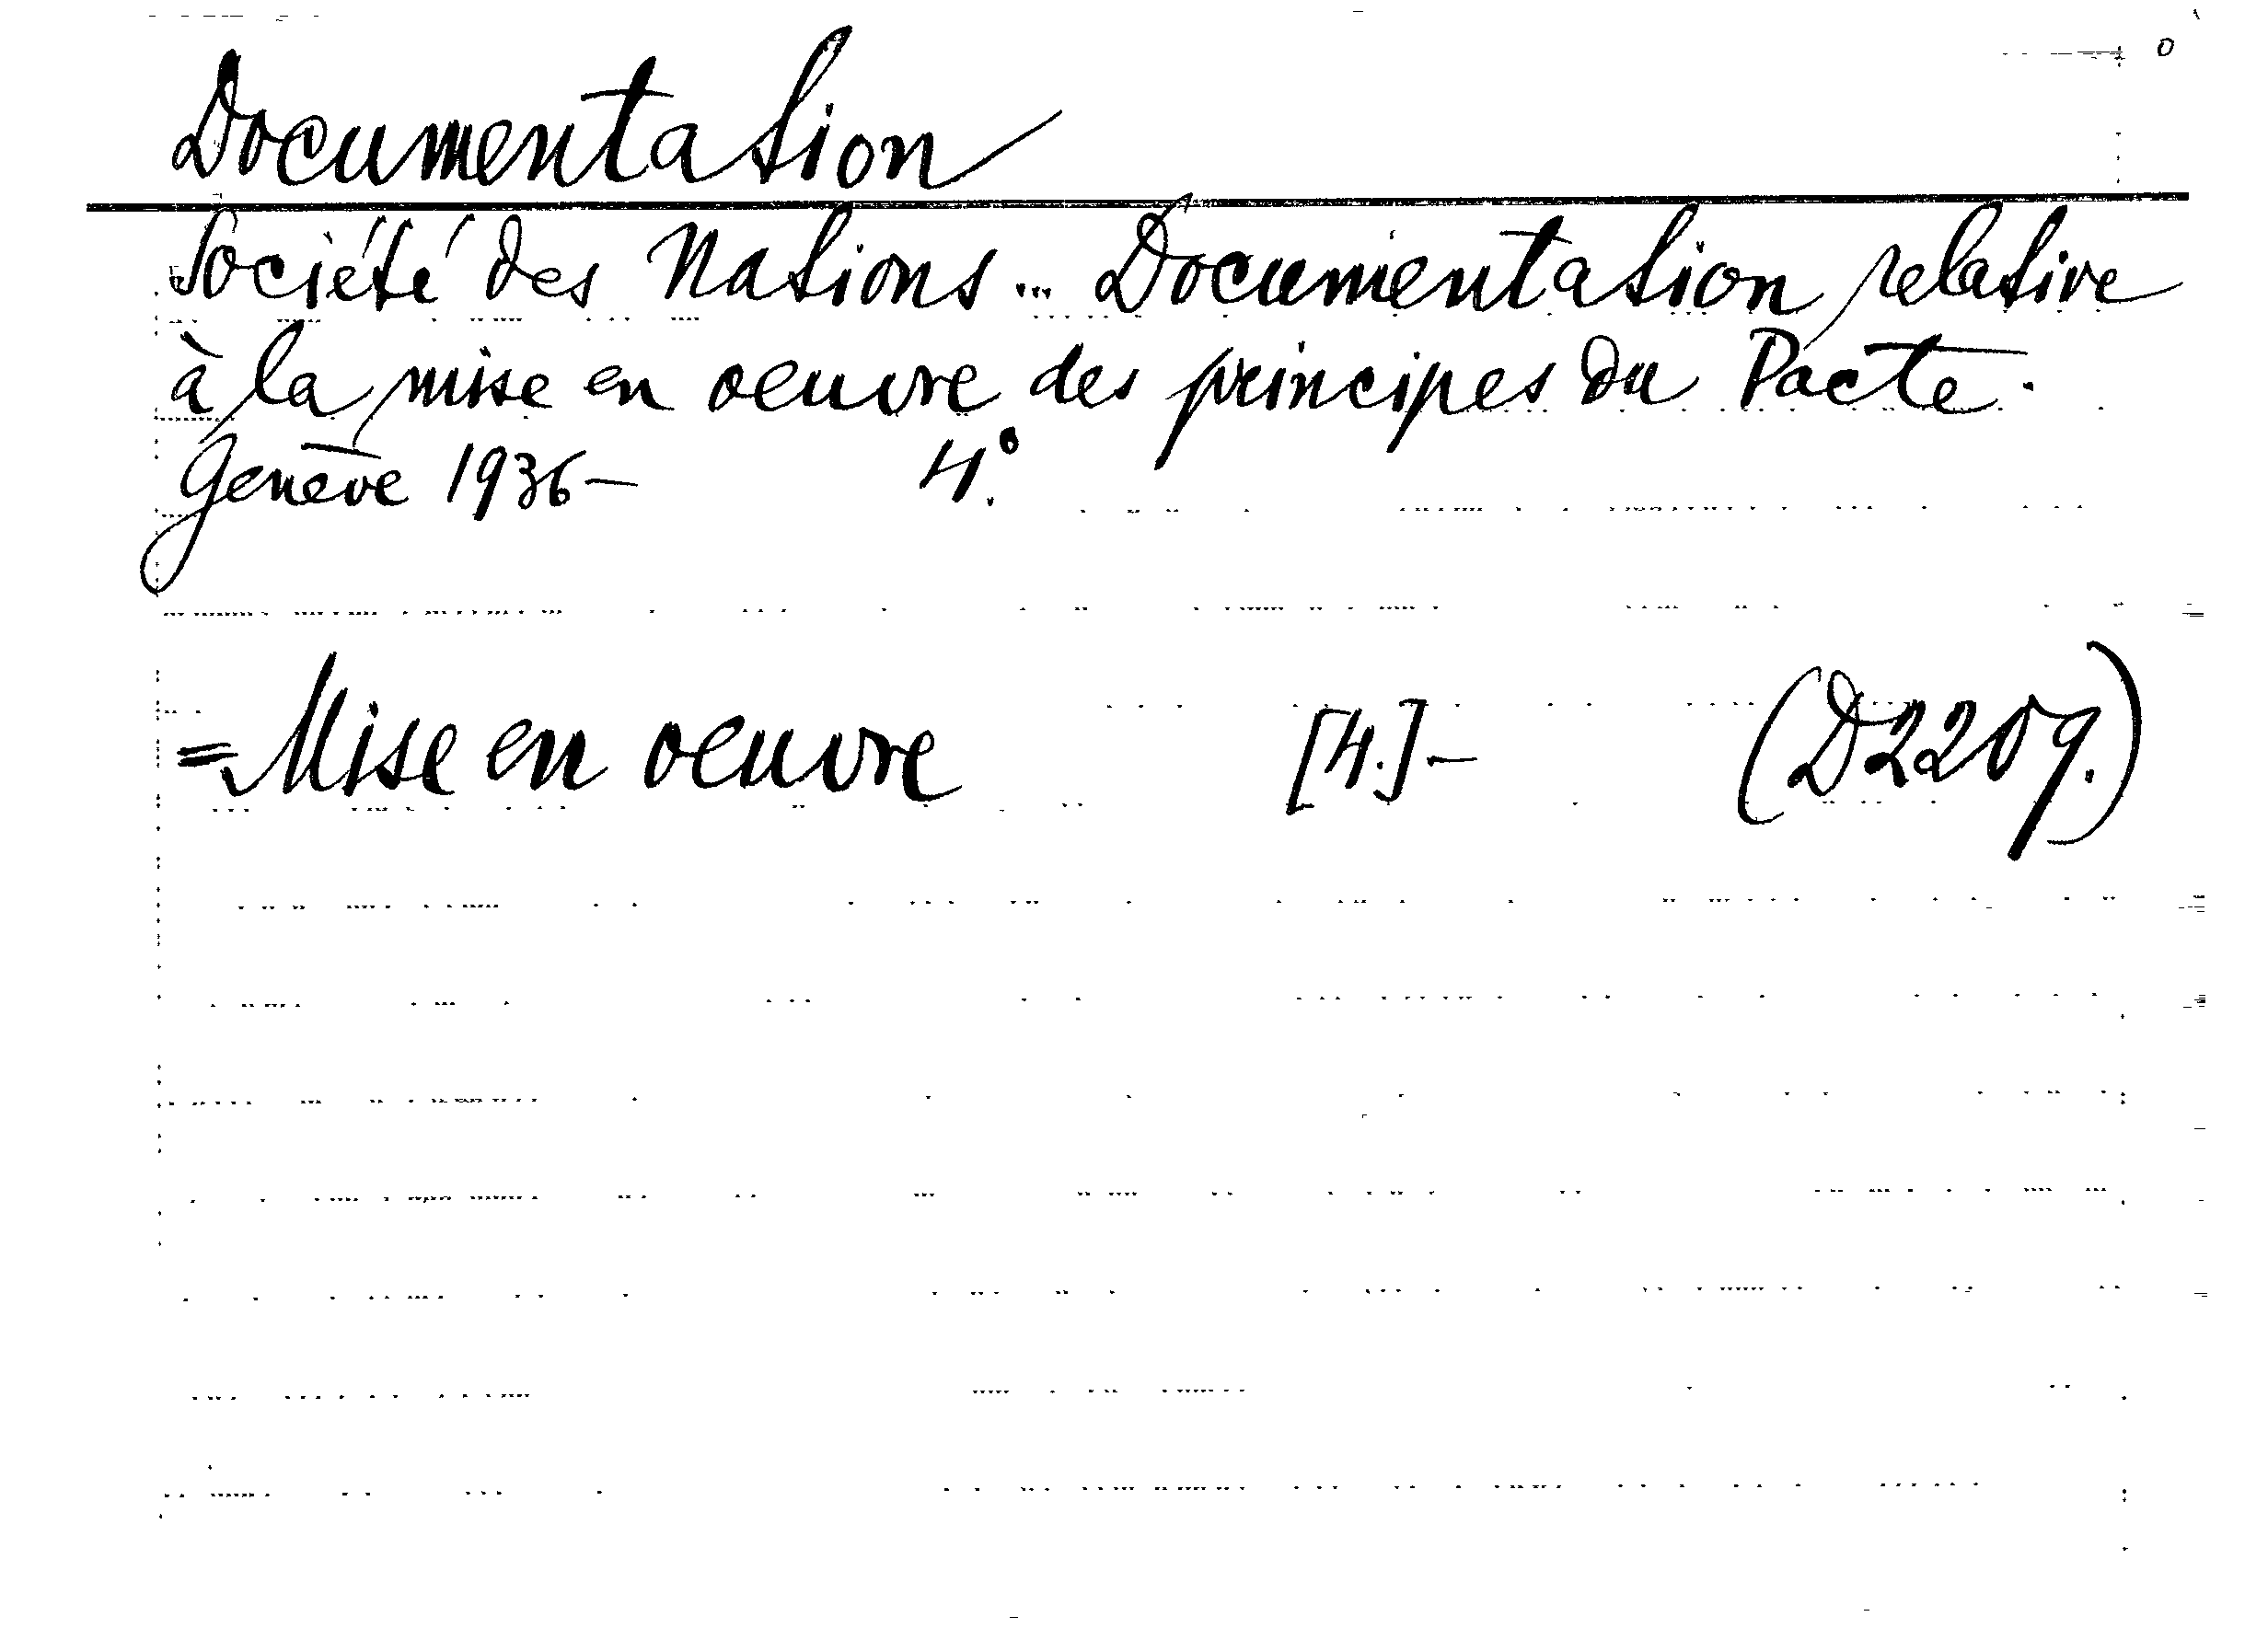 Documentation
Société des Nations... Documentation relative
à la mise en oeuvre des principes du Pacte.
Genève 1936- 4.º
= Mise en oeuvre [4.]- (D2209.)